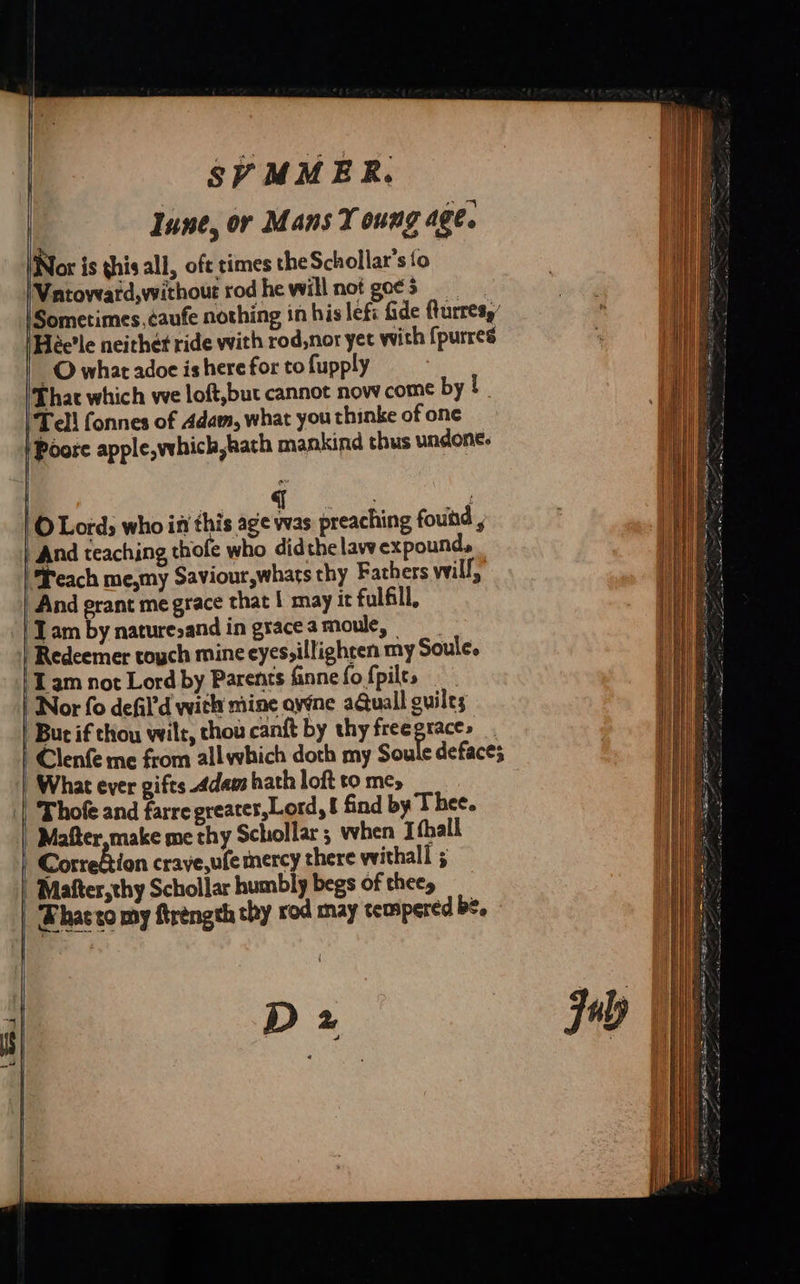 SVMMER.
Iune, or Mans Young age.
Nor is this all, oft times the Schollar's ſo
Vntoward, without rod he will not goe;
Sometimes, cauſe nothing in his left ſide ſturres,
Hee'le neither ride with rod, nor yet with ſpurres
O what adoe is here for to ſupply
That which we loſt, but cannot now come by!
Tell ſonnes of Adam, what you thinke of one
Poore apple, which, hath mankind thus undone.
¶
O Lord, who in this age was preaching found,
And teaching thoſe who did the law expound,
Teach me, my Saviour, whats thy Fathers will,
And grant me grace that I may it fulfill,
I am by nature, and in grace a moule,
Redeemer touch mine eyes, illighten my Soule.
I am not Lord by Parents ſinne ſo ſpilt,
Nor ſo defil'd with mine owne actuall guilt;
But if thou wilt, thou canſt by thy free grace,
Clenſe me from all which doth my Soule deface;
What ever gifts Adam hath loſt to me,
Thoſe and farre greater, Lord, I find by Thee.
Maſter, make me thy Schollar; when I ſhall
Correction crave, uſe mercy there withall;
Maſter, thy Schollar humbly begs of thee,
That to my ſtrength thy rod may tempered be.
D 2
July